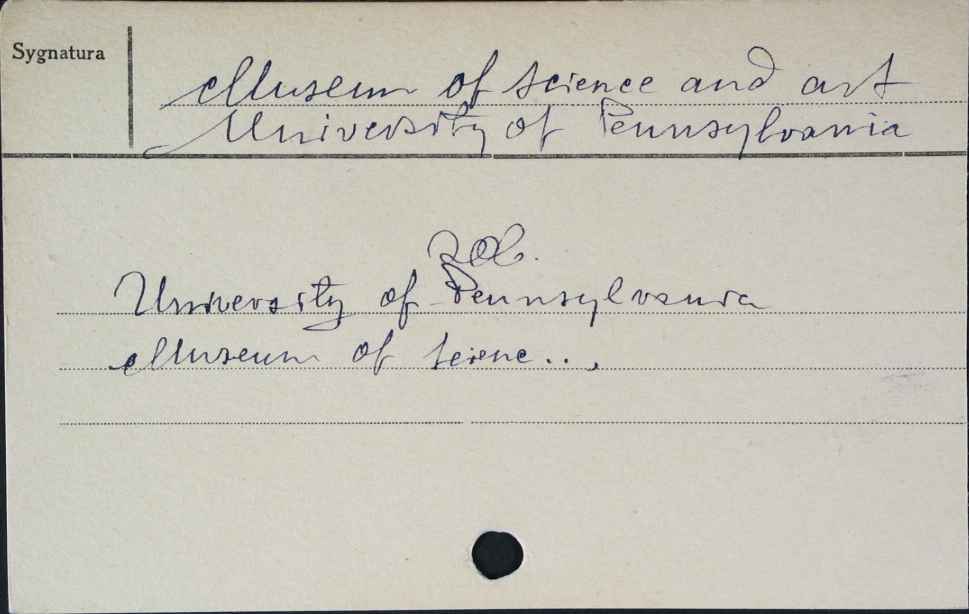 Sygnatura
Museum of science and art
University of Pennsylvania
zob.
University of Pennsylvania
Museum of scienc...